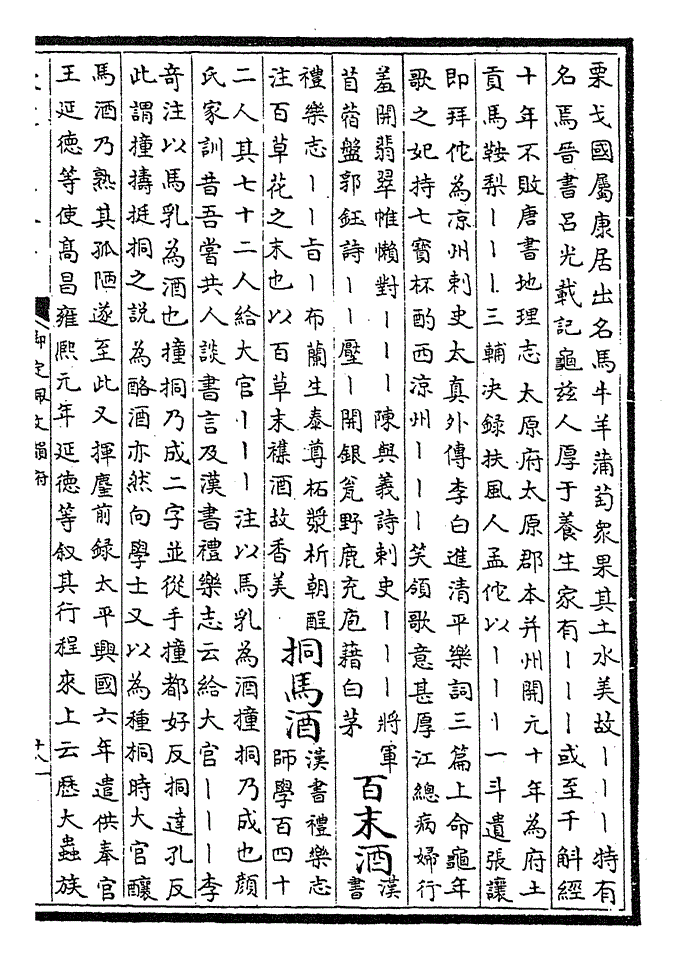 粟弋國屬康居出名馬牛羊蒲萄衆果其土水美故｜｜｜特有
名焉晉書呂光載記龜兹人厚于養生家有｜｜｜或至千斛經
十年不敗唐書地理志太原府太原郡本并州開元十年為府土
貢馬鞍梨｜｜｜三輔決録扶風人孟佗以｜｜｜｜一斗遺張讓
即拜佗為涼州刺史太真外傳李白進清平樂詞三篇上命龜年
歌之妃持七寶杯酌西涼州｜｜｜笑領歌意甚厚江總病婦行
羞開翡翠帷懶對｜｜｜陳與義詩刺史｜｜｜將軍
苜蓿盤郭鈺詩｜｜壓｜開銀瓮野鹿充庖藉白茅
百末酒
漢
書
禮樂志｜｜旨｜布蘭生泰尊柘漿析朝酲
注百草花之末也以百草末襍酒故香美
挏馬酒
漢書禮樂志
師學百四十
二人其七十二人給大官｜｜｜注以馬乳為酒撞挏乃成也顔
氏家訓昔吾嘗共人談書言及漢書禮樂志云給大官｜｜｜李
竒注以馬乳為酒也撞挏乃成二字並從手撞都好反挏達孔反
此謂撞擣挺挏之說為酪酒亦然向學士又以為種桐時大官釀
馬酒乃熟其孤陋遂至此又揮麈前録太平興國六年遣供奉官
王延徳等使髙昌雍熈元年延徳等叙其行程來上云歴大蟲族
御定佩文韻府